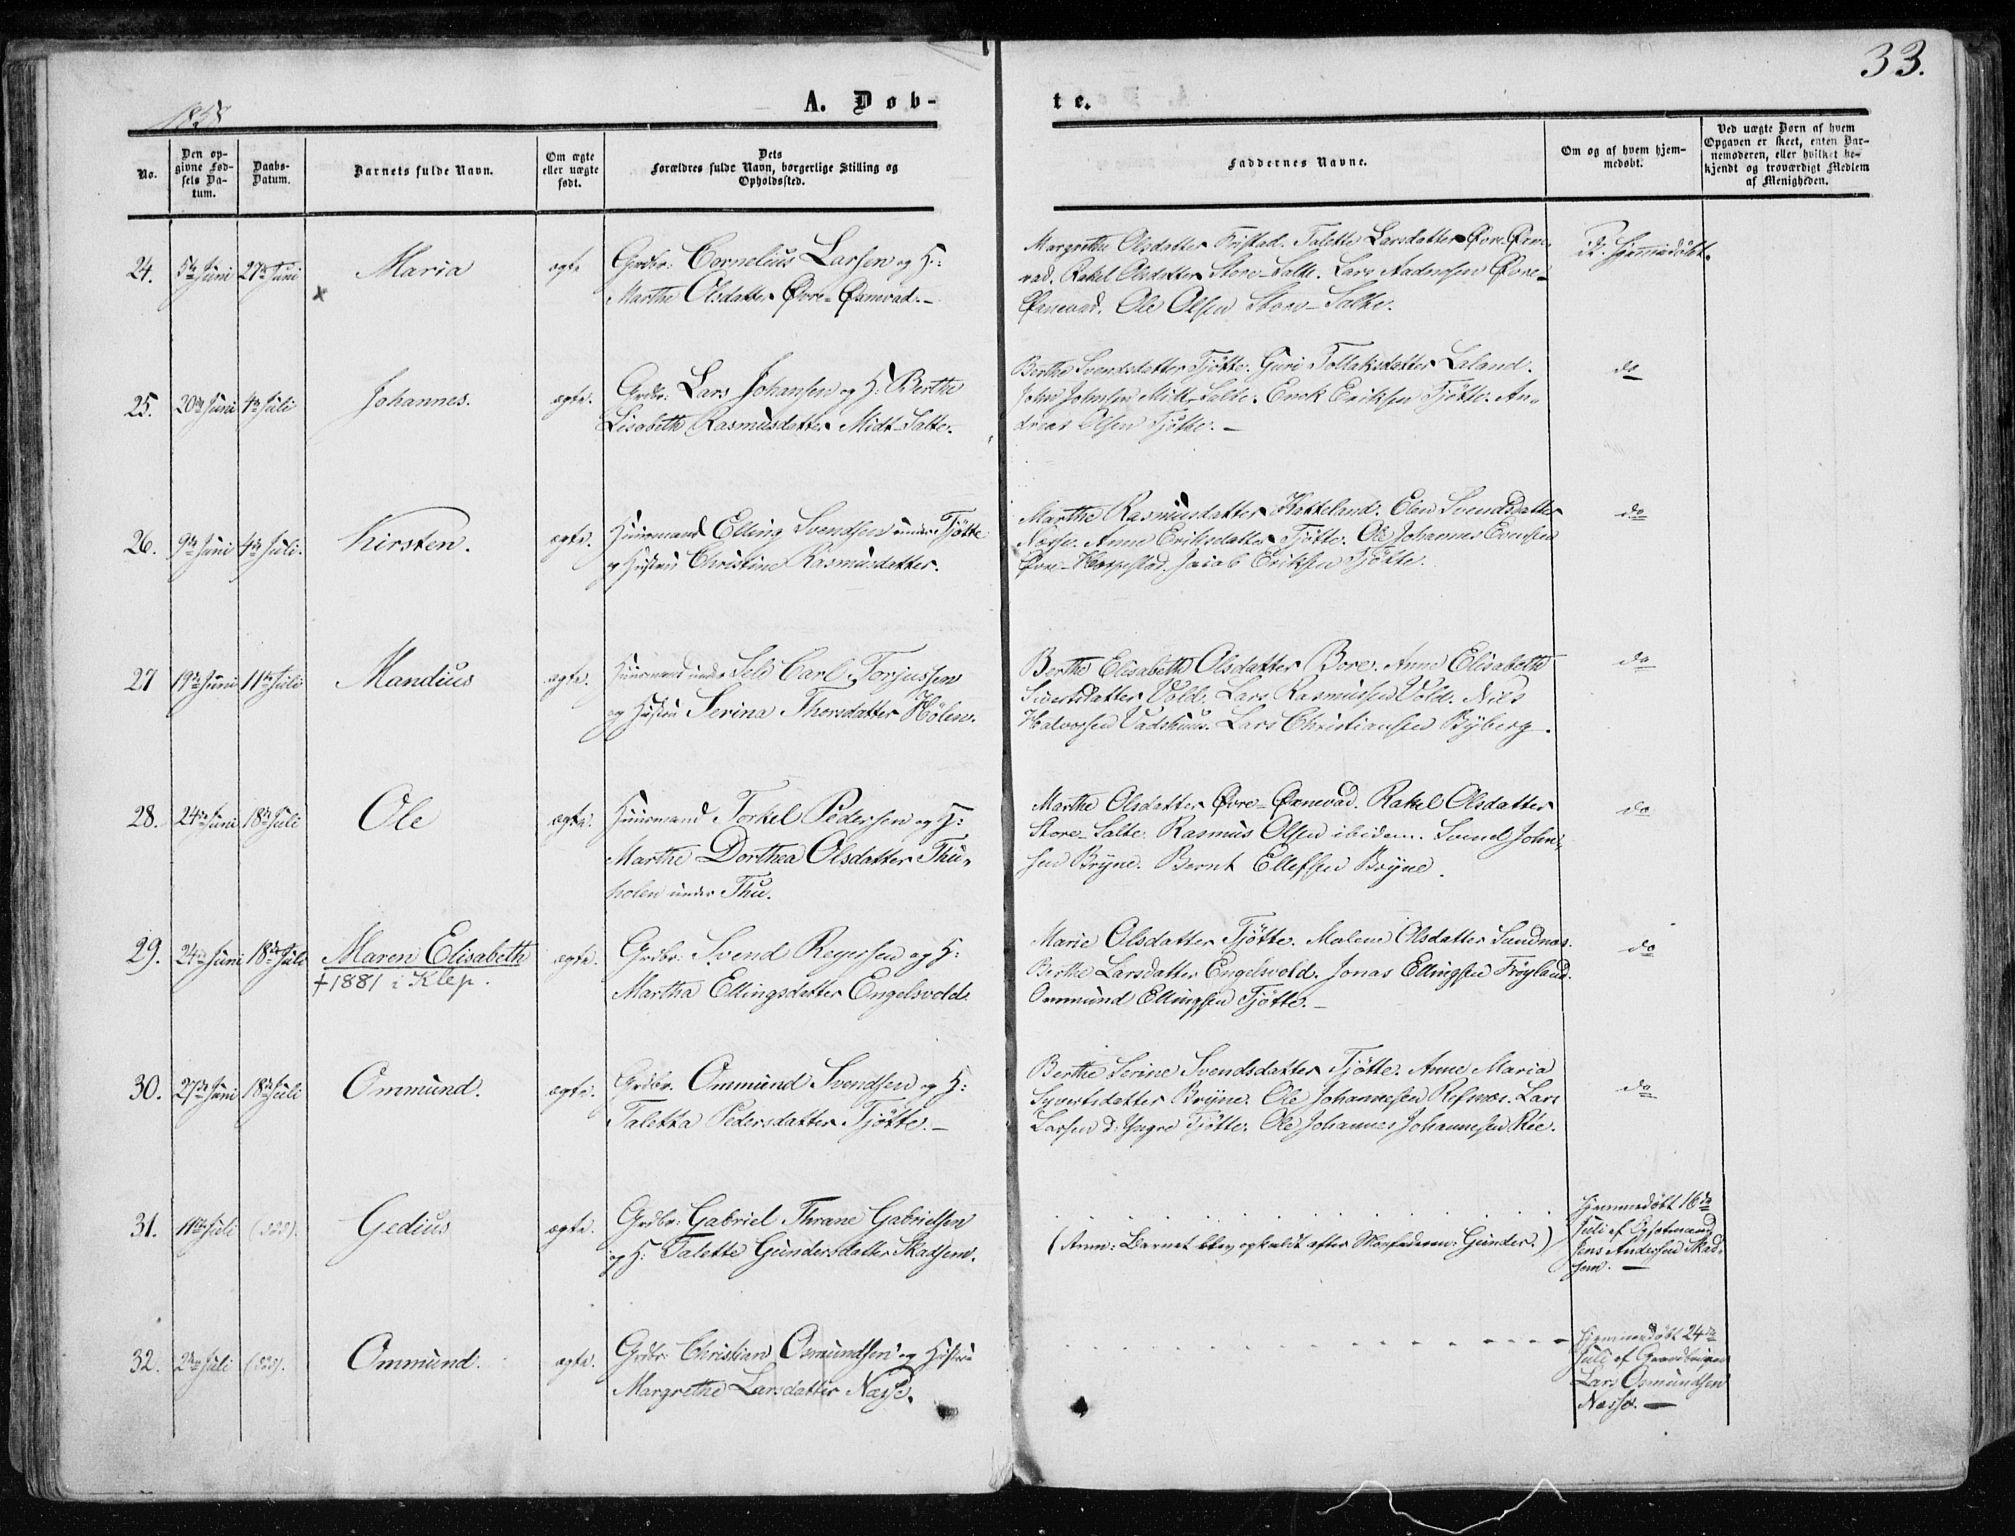 33.
1858
A. Døb-
te.
No.
Den op-
givne Fød-
sels Da-
tum.
Daabs-
Datum.
Barnets fulde Navn.
Om ægte
eller uægte
født.
Dets
Forældres fulde Navn, borgerlige Stilling og
Opholdssted.
Faddernes Navne.
Om og af hvem hjem-
medøbt.
Ved uægte Børn af hvem
Opgaven er skeet, enten Bar-
nemoderen, eller hvilket be-
kjendt og troværdigt Medlem
af Menigheden.
24. 5te Juni 27de Juni Maria ægte
Grdbr: Cornelius Larsen og H:
Marthe Olsdatter Øvre-Øxnevad.-
Margrethe Olsdatter Tristad. Talette Larsdatter Øvre Øxne-
vad. Rakel Olsdatter Store-Salte. Lars Aadnesen Øvre-
Øxnevad. Ole Olsen Store-Salte.
ei hjemmedøbt.
25. 20de Juni 4de Juli Johannes. ægte.
Grdbr: Lars Johansen og H: Berthe
Lisabeth Rasmusdatter Midt-Salte.
Berthe Svendsdatter Tjøtte. Guri Tollaksdatter Laland.
John Johnsen Midt-Salte. Enok Eriksen Tjøtte. An-
dreas Olsen Tjøtte.-
do
26. 9de Juni 4de Juli. Kirsten. ægte.
Huusmand Elling Svendsen under Tjøtte
og Hustru Christine Rasmusdatter.
Marthe Rasmusdatter Hatteland. Elen Svendsdatter
Næsse. Anne Eriksdatter Tjøtte. Ole Johannes Evensen
Øvre-Horpestad. Jacob Eriksen Tjøtte.
do
27 19de Juni 11te Juli Mandius ægte.
Huusmand under Sele Carl Torjussen
og Hustru Serina Thorsdatter Hølen.
Berthe Elisabeth Olsdatter Bore. Anne Elisabeth
Sivertsdatter Vold. Lars Rasmussen Vold. Nils
Halvorsen Vadshuus. Lars Christiansen Byberg.
do
28. 24de Juni 18de Juli Ole ægte.
Huusmand Torkel Pedersen og H:
Marthe Dorthea Olsdatter Thu-
holen under Thu.
Marthe Olsdatter Øvre-Øxnevad. Rakel Olsdatter
Store-Salte. Rasmus Olsen ibidem. Svend John-
sen Bryne. Bernt Ellefsen Bryne.
do
29. 24de Juni 18de Juli Maren Elisabeth ægte.
†1881 i Klep.
Grdbr: Svend Regersen og H:
Martha Ellingsdatter Engelsvold.
Marie Olsdatter Tjøtte. Malene Olsdatter Sandnæs.
Berthe Larsdatter Engelsvold. Jonas Ellingsen Frøyland.
Ommund Ellingsen Tjøtte.-
do
30. 27de Juni 18de Juli Ommund. ægte.
Grdbr. Ommund Svendsen og H:
Taletta Pedersdatter Tjøtte.-
Berthe Serine Svendsdatter Tjøtte. Anne Maria
Syvertsdatter Bryne. Ole Johannesen Refsnæs. Lars
Larsen d: Yngre Tjøtte. Ole Johannes Johannesen Rie.
do
31. 11te Juli Gedius ægte.
Grdbr: Gabriel Thrane Gabrielsen
og H: Talette Gundersdatter Skadsem.
(Anm: Barnet blev opkaldt efter Morfaderen: Gunder.)
Hjemmedøbt 16de
Juli af
Jens Andersen Skad-
sem.-
32. Juli Ommund. ægte.
Grdbr: Christian Osmundsen og Hustru
Margrethe Larsdatter Næsse.
Hjemmedøbt 24de
Juli af Gaardbruger
Lars Osmundsen
Næsse.-